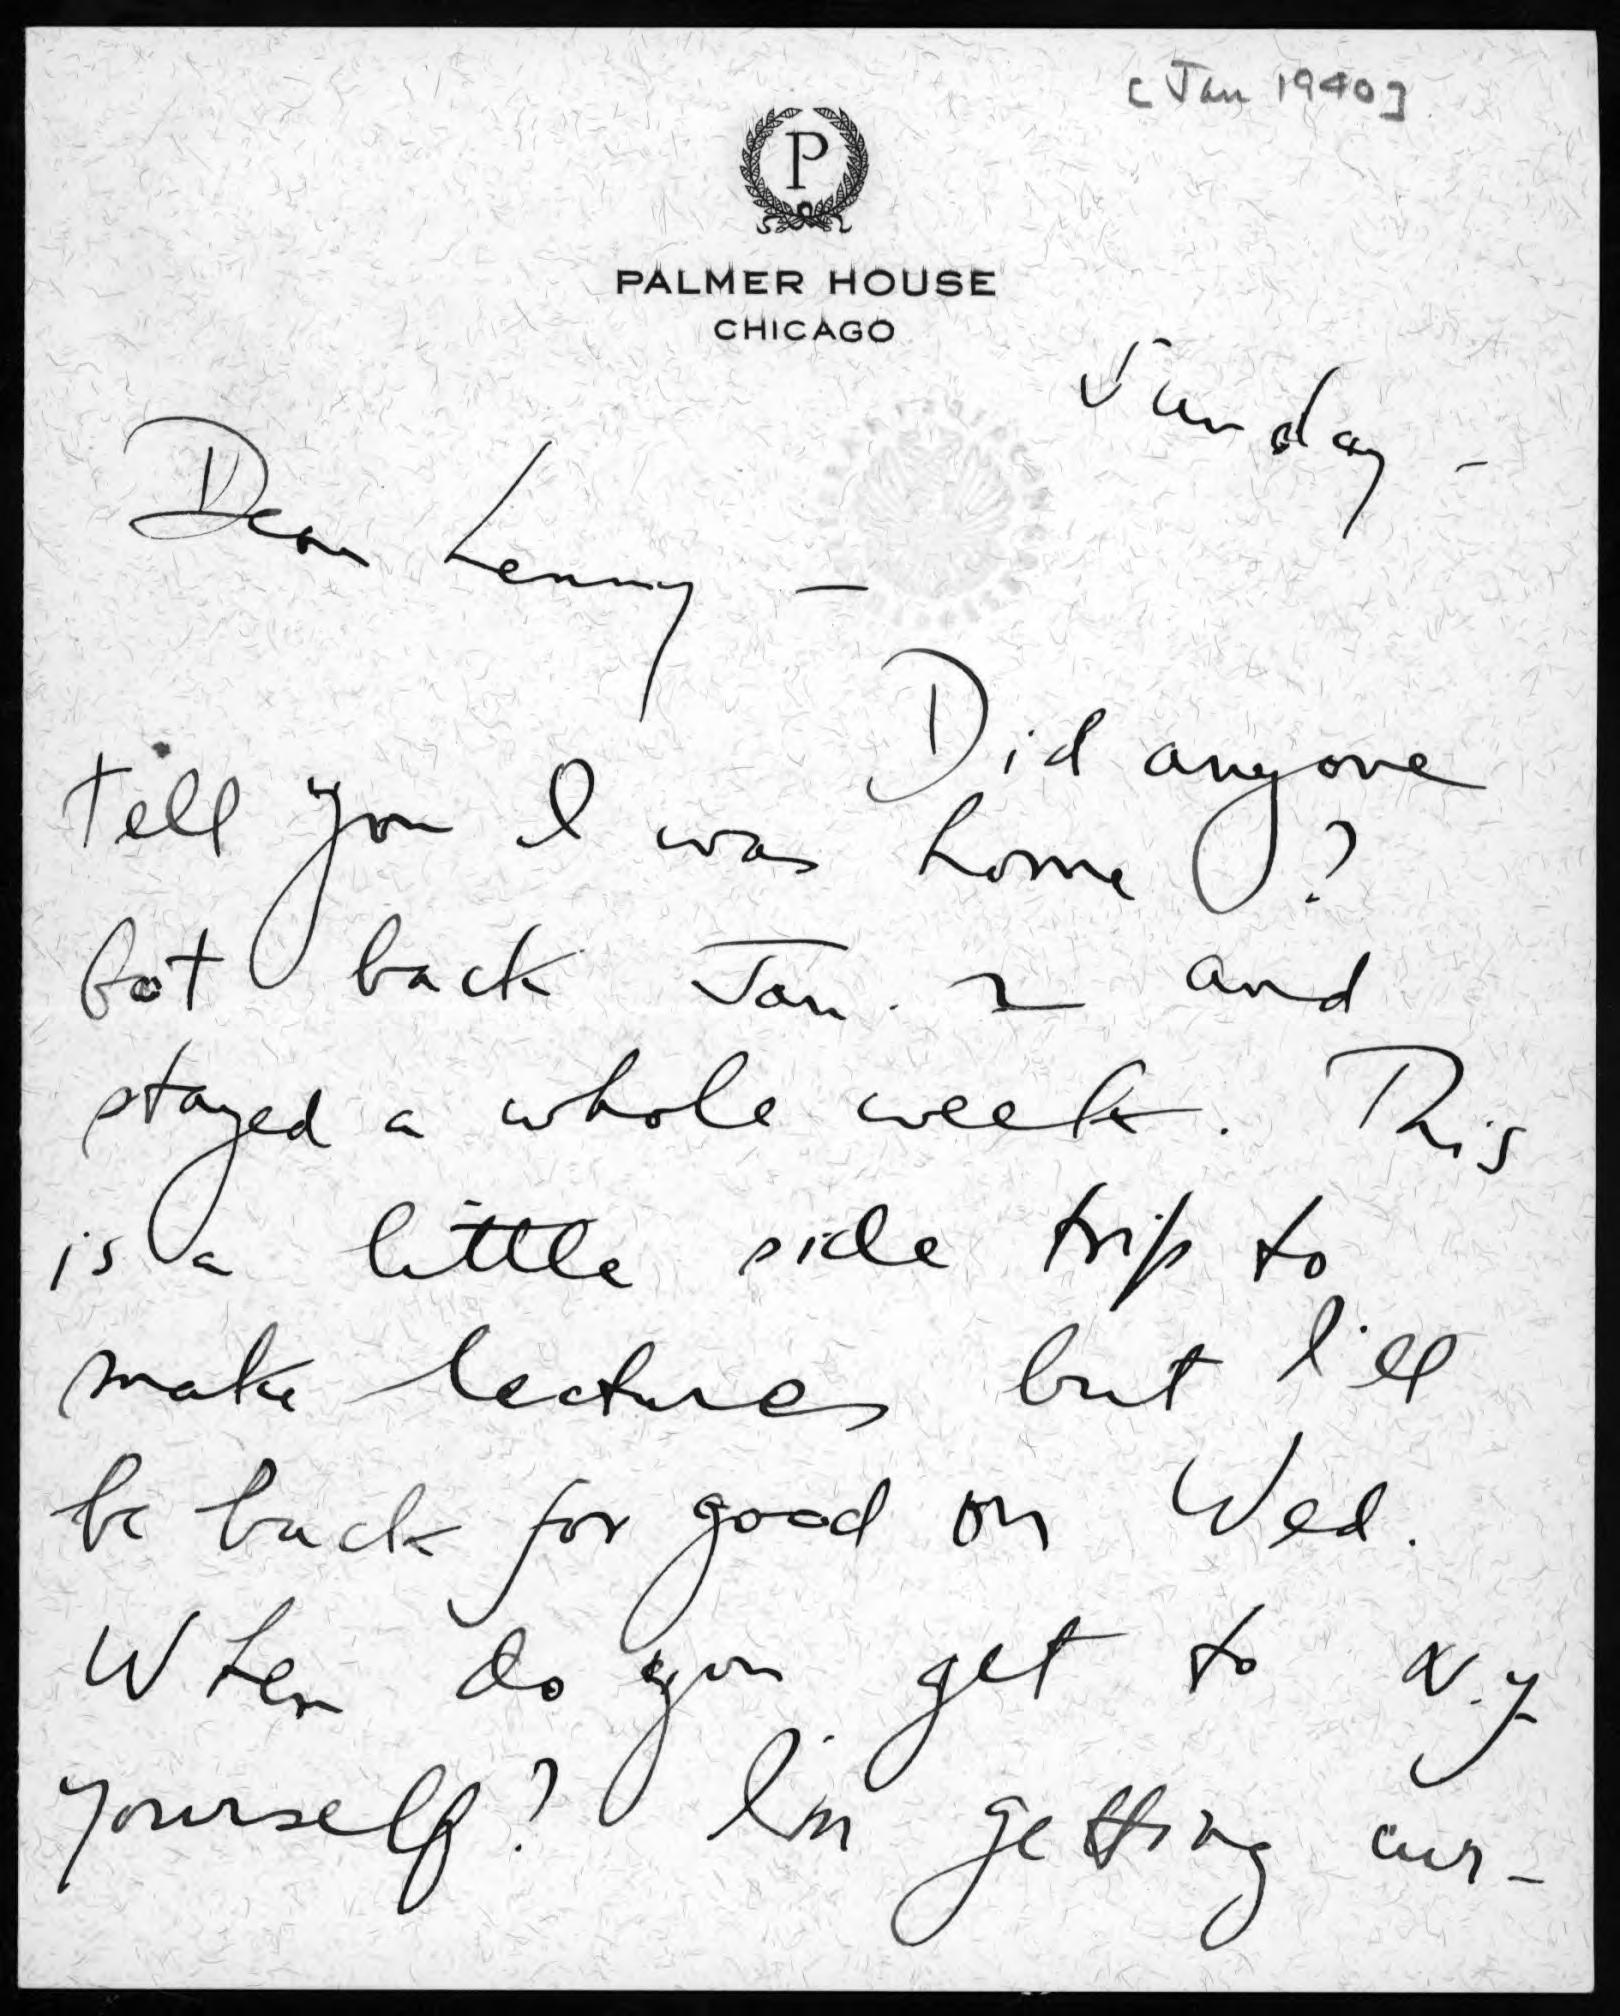 [Jan 1940]
P
PALMER HOUSE
CHICAGO
Sunday -
Dear Lenny —
Did anyone
tell you I was home?
Got back Jan. 2 and
stayed a whole week. This
is a little side trip to
make lectures but I'll
be back for good on Wed.
When do you get to N.Y.
yourself? I'm getting cur-